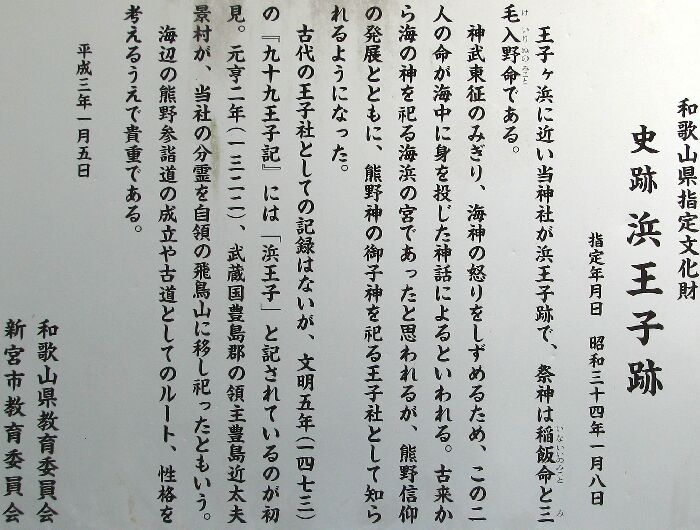 和歌山県指定文化財
史跡 浜王子跡
指定年月日 昭和三十四年一月八日
王子ヶ浜に近い当神社が浜王子跡で、祭神は稲飯命と三
いないいのみこと み
毛入野命である。
け いりぬのみこと
神武東征のみぎり、海神の怒りをしずめるため、この二
人の命が海中に身を投じた神話によるといわれる。古来か
ら海の神を祀る海浜の宮であったと思われるが、熊野信仰
の発展とともに、熊野神の御子神を祀る王子社として知ら
れるようになった。
古代の王子社としての記録はないが、文明五年(一四七三)
の『九十九王子記』には「浜王子」と記されているのが初
見。元亨二年(一三二二)、武蔵国豊島郡の領主豊島近太夫
景村が、当社の分霊を自領の飛鳥山に移し祀ったともいう。
海辺の熊野参詣道の成立や古道としてのルート、性格を
考えるうえで貴重である。
平成三年一月五日
和歌山県教育委員会
新宮市教育委員会